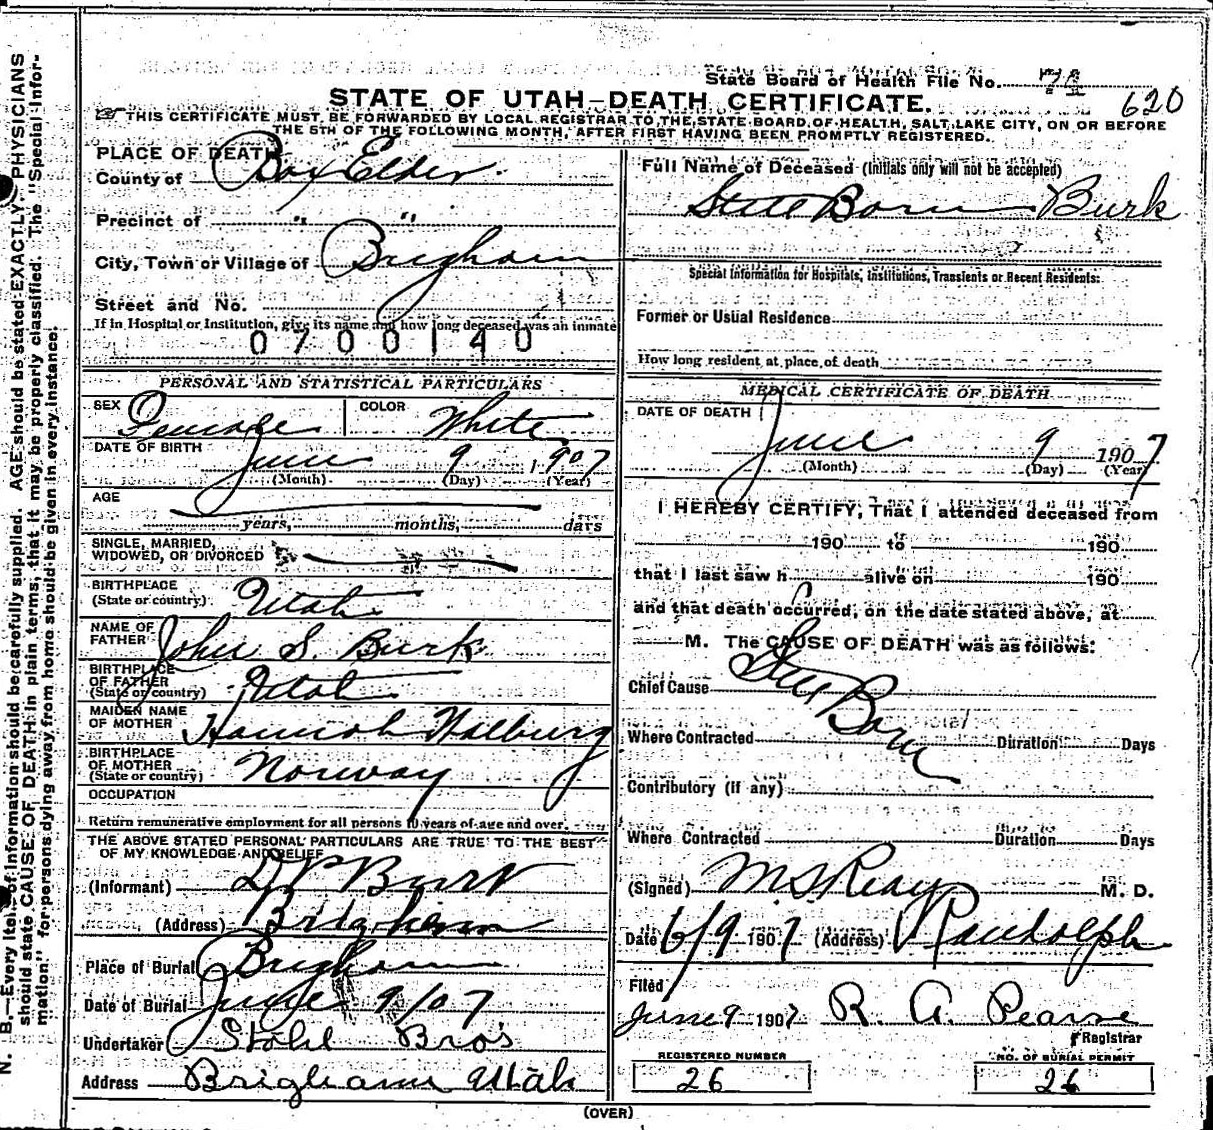 State Board of Health File No. 71
620
STATE OF UTAH—DEATH CERTIFICATE.
THIS CERTIFICATE MUST BE FORWARDED BY LOCAL REGISTRAR TO THE STATE BOARD OF HEALTH, SALT LAKE CITY, ON OR BEFORE
THE 5TH OF THE FOLLOWING MONTH, AFTER FIRST HAVING BEEN PROMPTLY REGISTERED.
PLACE OF DEATH
County of Box Elder.
Precinct of " "
City, Town or Village of Brigham
Street and No.
If in Hospital or Institution, give its name and how long deceased was an inmate
0700140
PERSONAL AND STATISTICAL PARTICULARS
SEX Female COLOR White
DATE OF BIRTH June 9 1907
(Month) (Day) (Year)
AGE
years, months, days
SINGLE, MARRIED,
WIDOWED, OR DIVORCED
BIRTHPLACE
(State or country) Utah
NAME OF
FATHER John S. Burk
BIRTHPLACE
OF FATHER
(State or country) Utah
MAIDEN NAME
OF MOTHER Hannah Halburg
BIRTHPLACE
OF MOTHER
(State or country) Norway
OCCUPATION
Return remunerative employment for all persons 10 years of age and over.
THE ABOVE STATED PERSONAL PARTICULARS ARE TRUE TO THE BEST
OF MY KNOWLEDGE AND BELIEF
(Informant) D P Burk
(Address) Brigham
Place of Burial Brigham
Date of Burial June 9/07
Undertaker Stohl Bros
Address Brigham Utah
Full Name of Deceased (Initials only will not be accepted)
Still Born Burk
Special Information for Hospitals, Institutions, Transients or Recent Residents:
Former or Usual Residence
How long resident at place of death
MEDICAL CERTIFICATE OF DEATH
DATE OF DEATH
June 9 1907
(Month) (Day) (Year)
I HEREBY CERTIFY, That I attended deceased from
190 to 190
that I last saw h alive on 190
and that death occurred, on the date stated above, at
M. The CAUSE OF DEATH was as follows:
Chief Cause Still Born
Where Contracted Duration Days
Contributory (if any)
Where Contracted Duration Days
(Signed) M. D.
Date 6/9 1907 (Address) Randolph
Filed
June 9 1907 R. A. Pearse
Registrar
REGISTERED NUMBER
26
NO. OF BURIAL PERMIT
26
(OVER)
N. B.—Every item of information should be carefully supplied. AGE should be stated EXACTLY. PHYSICIANS
should state CAUSE OF DEATH in plain terms, that it may be properly classified. The "Special Infor-
mation" for persons dying away from home should be given in every instance.